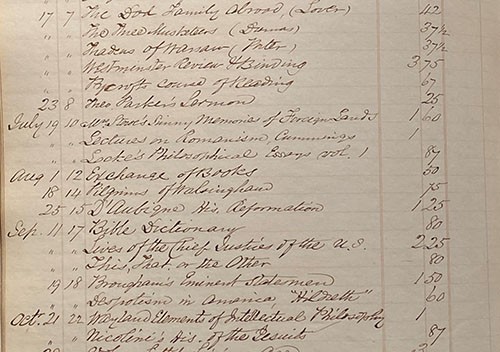 17 7 The Dod Family Abroad, (Lever) 42
" " The Three Musketeers (Dumas) 37½
" " Thadeus of Warsaw (Porter) 37½
" " Westminster Review & Binding 3 75
" " Pycrofts Course of Reading 67
23 8 Theo Parker's Sermon 25
July 19 10 Mrs Stowe's Sunny Memories of Foreign Lands 1 60
" " Lectures on Romanism Cummings 1
" " Locke's Philosophical Essays vol. 1 87
Aug 1 12 Exchange of Books 50
18 14 Pilgrims of Walsingham 75
25 15 D'Aubigne His. Reformation 1 25
Sep. 11 17 Bible Dictionary 80
" " Lives of the Chief Justices of the U.S. 2 25
" " This, That, or the Other 80
19 18 Brougham's Eminent Statesmen 1 50
" " Despotism in America, "Hildreth" 60
Oct. 21 22 Wayland Elements of Intellectual Philosophy 1
" " Nicolini's His. of the Jesuits 87